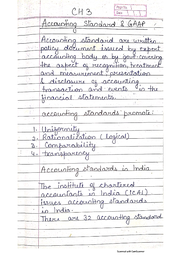 CH 3
Accounting Standard & GAAP
Accounting standard are written
policy document issued by expert
accounting body or by govt covering
the aspect of recognition, treatment
and measurement, presentation
& disclosure of accounting
transaction and events in the
financial statements.
accounting standards promote:
1. Uniformity
2. Rationalization (Logical)
3. Comparability
4. transparency
Accounting standards in India
The institute of chartered
accountants in India (ICAI)
Issues accounting standards
in India.
There are 32 accounting standard